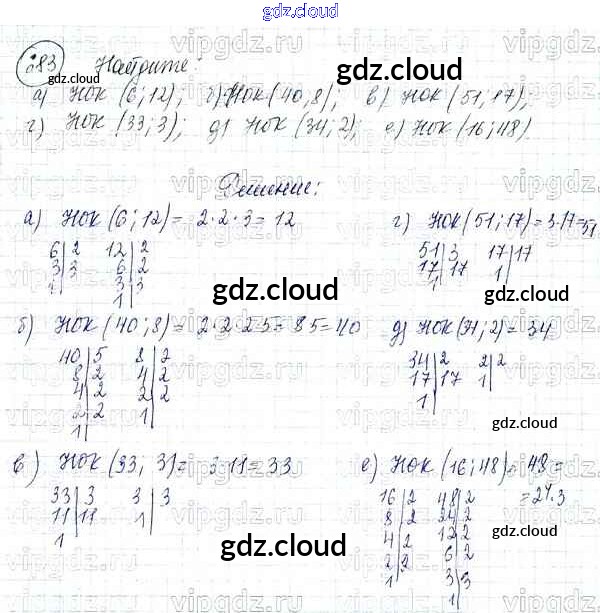 gdz.cloud
283 Найдите:
а) НОК (6; 12); б) НОК (40, 8); в) НОК (51, 17);
г) НОК (33; 3); д) НОК (34; 2); е) НОК (16; 48).
Решение:
а) НОК (6; 12) = 2·2·3 = 12
6|2 12|2
3|3 6|2
1| 3|3
1|
г) НОК (51; 17) = 3·17 = 51
51|3 17|17
17|17 1|
1|
б) НОК (40; 8) = 2·2·2·5 = 8·5 = 40
40|5 8|2
8|2 4|2
4|2 2|2
2|2 1|
1|
д) НОК (34; 2) = 34
34|2 2|2
17|17 1|
1|
в) НОК (33; 3) = 3·11 = 33
33|3 3|3
11|11 1|
1
е) НОК (16; 48) = 48 =
= 2⁴·3
16|2 48|2
8|2 24|2
4|2 12|2
2|2 6|2
1| 3|3
1|
gdz.cloud